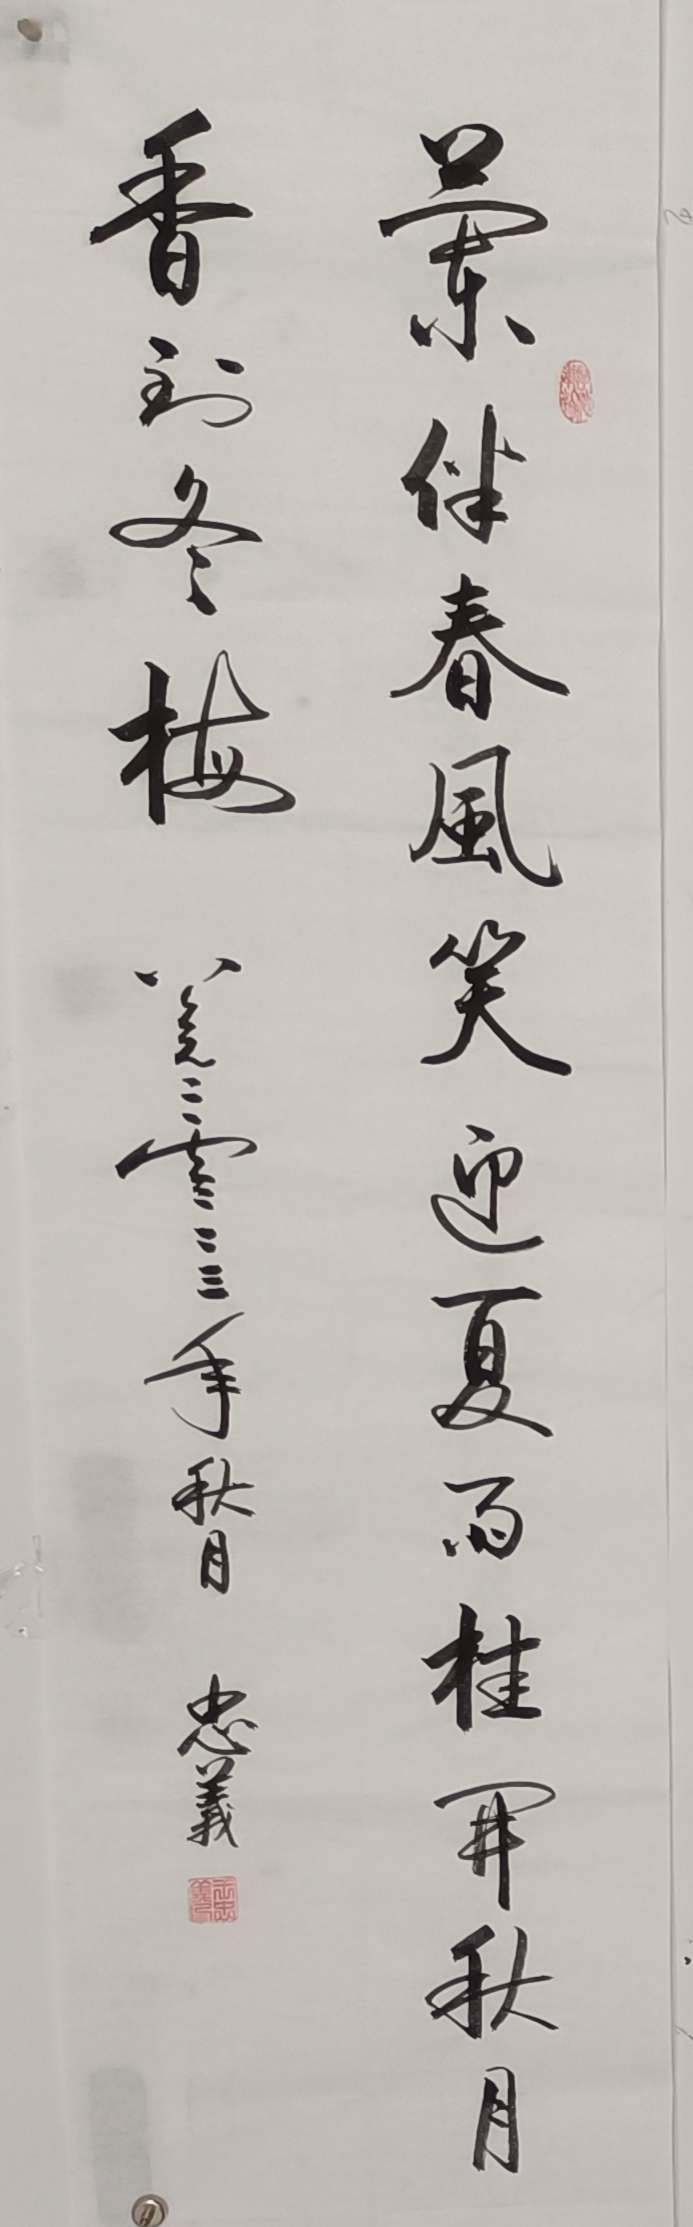 蘭伴春風笑迎夏雨桂開秋月
香到冬梅 公元二零二三年秋月 忠義